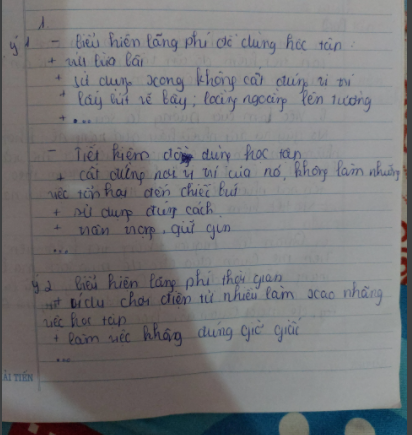 1
ý 1 - Biểu hiện lãng phí đồ dùng học tập :
+ vứt bừa bãi
+ sử dụng xong không cất đúng vị trí
+ lấy bút vẽ bậy; loằng ngoằng lên tường
+ ...
- Tiết kiệm đồ dùng học tập
+ cất đúng nơi vị trí của nó, không làm những
việc tổn hại đến chiếc bút
+ sử dụng đúng cách
+ trân trọng, giữ gìn
...
ý 2 Biểu hiện lãng phí thời gian
ví dụ chơi điện tử nhiều làm xao nhãng
việc học tập
+ làm việc không đúng giờ giấc
...
ẢI TIẾN